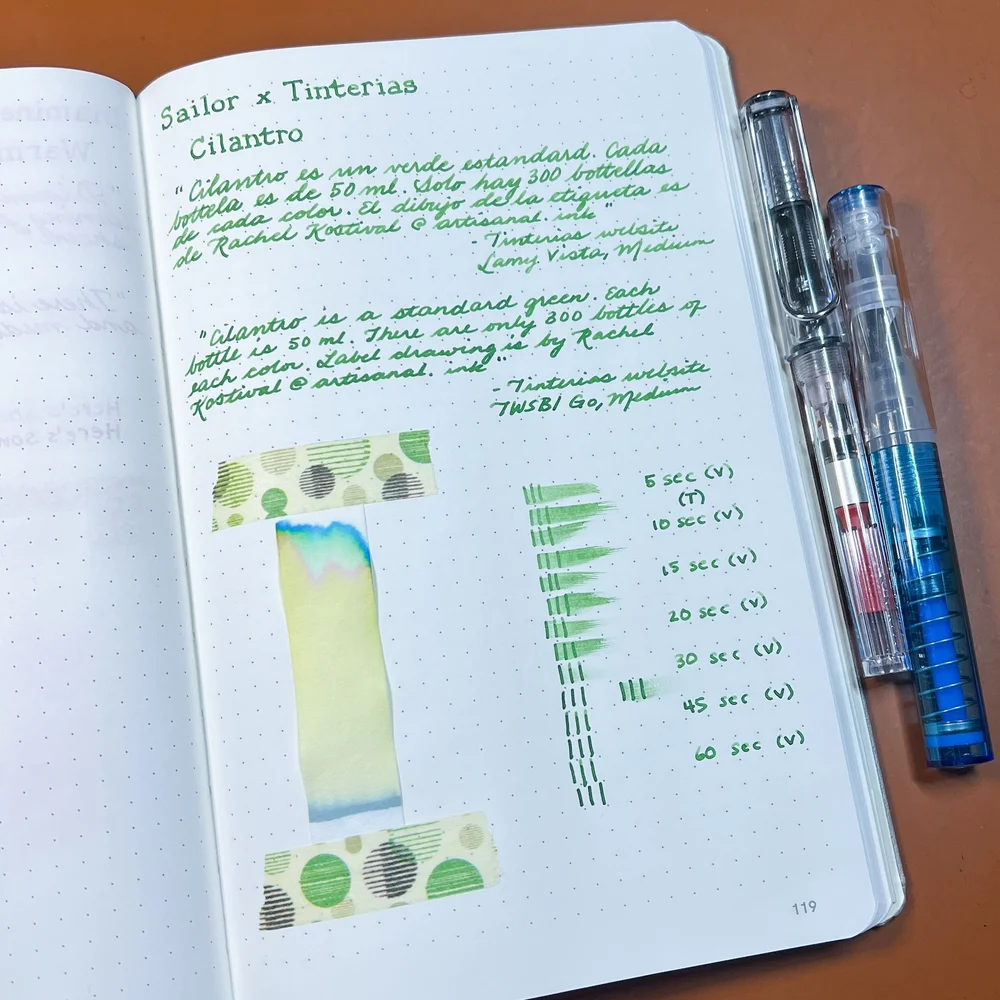 Sailor x Tinterias
Cilantro
"Cilantro es un verde estandard. Cada
bottela es de 50 ml. Solo hay 300 bottellas
de cada color. El dibujo de la etiqueta es
de Rachel Kostival @ artisanal. ink"
- Tinterias website
Lamy Vista, Medium
"Cilantro is a standard green. Each
bottle is 50 ml. There are only 300 bottles of
each color. Label drawing is by Rachel
Kostival @ artisanal. ink"
- Tinterias website
TWSBI Go, Medium
5 sec (V)
(T)
10 sec (V)
15 sec (V)
20 sec (V)
30 sec (V)
45 sec (V)
60 sec (V)
119